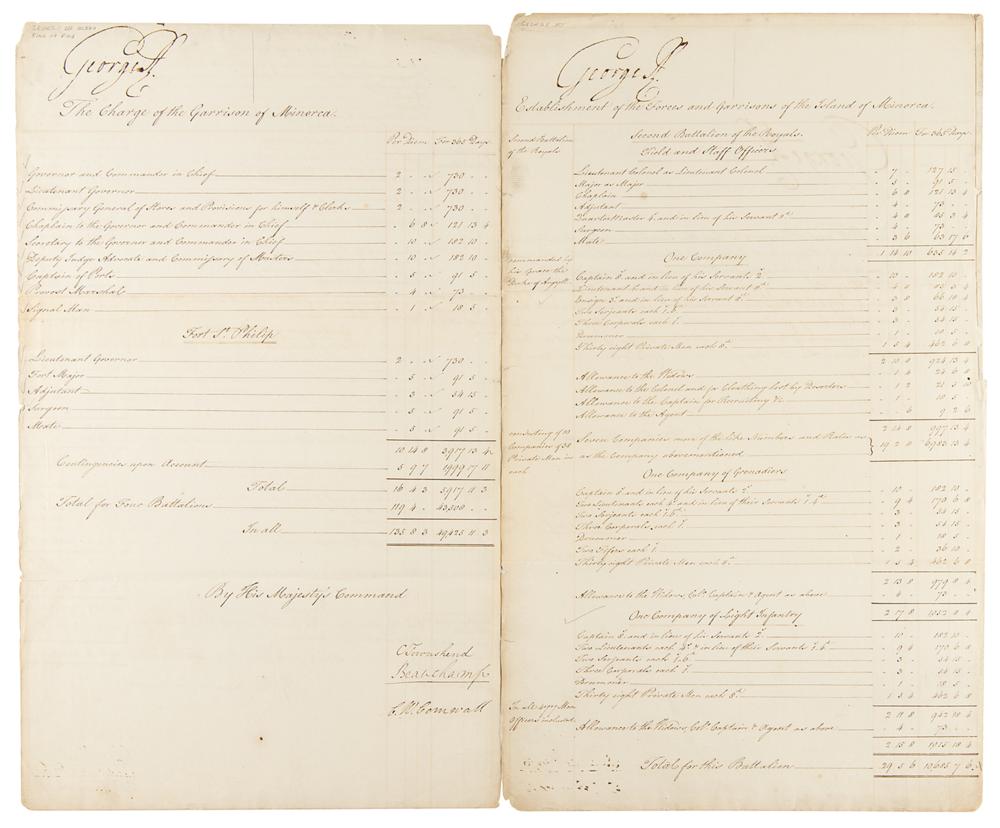 George R.
The Charge of the Garrison of Minorca.
Per Diem For 365 Days
Governor and Commander in Chief 2 . . 730 . .
Lieutenant Governor 2 . . 730 . .
Commissary General of Stores and Provisions for himself & Clerks 2 . . 730 . .
Chaplain to the Governor and Commander in Chief . 6 8 121 13 4
Secretary to the Governor and Commander in Chief . 10 . 182 10 .
Deputy Judge Advocate and Commissary of Musters . 10 . 182 10 .
Captain of Ports . 5 . 91 5 .
Provost Marshal . 4 . 73 . .
Signal Man . 1 . 18 5 .
Fort St. Philip
Lieutenant Governor 2 . . 730 . .
Fort Major . 5 . 91 5 .
Adjutant . 3 . 54 15 .
Surgeon . 5 . 91 5 .
Mate . 5 . 91 5 .
10 14 8 3917 13 4
Contingencies upon Account 5 9 7 1999 17 11
Total 16 4 3 5917 11 3
Total for Four Battalions 119 4 .
In all 135 8 3 49,425 11 3
By His Majesty's Command
C Townshend
Beauchamp
C. W. Cornwall
George R.
Establishment of the Forces and Garrisons of the Island of Minorca.
Second Battalion of the Royals
Second Battalion of the Royals.
Per Diem For 365 Days
Field and Staff Officers
Lieutenant Colonel as Lieutenant Colonel . 7 . 127 15 .
Major as Major . 5 . 91 5 .
Chaplain . 6 8 121 13 4
Adjutant . 4 . 73 . .
Quarter Master and in lieu of his Servant . 4 8 85 3 4
Surgeon . 4 . 73 . .
Mate . 3 6 63 17 6
1 14 10 635 14 2
Commanded by his Grace the Duke of Argyll
One Company
Captain 8s. and in lieu of his Servants 2s. . 10 . 182 10 .
Lieutenant and in lieu of his Servant . 4 8 85 3 4
Ensign 3s. and in lieu of his Servant 8d. . 3 8 66 18 4
Two Serjeants each 1s. 6d. . 3 . 54 15 .
Three Corporals each 1s. . 3 . 54 15 .
Drummer . 1 . 18 5 .
Thirty eight Private Men each 8d. 1 5 4 462 6 8
2 10 8 924 13 4
Allowance to the Widows . 1 4 24 6 8
Allowance to the Colonel and for Cloathing lost by Deserters . 1 2 21 5 10
Allowance to the Captain for Recruiting &c . 1 . 18 5 .
Allowance to the Agent . . 6 9 2 6
2 14 8 997 13 4
consisting of 10 Companies of 38 Private Men in each
Seven Companies more of the like Numbers and Rates as
as the Company abovementioned 19 2 8 6983 13 4
One Company of Grenadiers
Captain 8s. and in lieu of his Servants 2s. . 10 . 182 10 .
Two Lieutenants each 4s. and in lieu of their Servants 1s. 4d. . 9 4 170 6 8
Two Serjeants each 1s. 6d. . 3 . 54 15 .
Three Corporals each 1s. . 3 . 54 15 .
Drummer . 1 . 18 5 .
Two Fifers each 1s. . 2 . 36 10 .
Thirty eight Private Men each 8d. 1 5 4 462 6 8
2 13 8 979 8 4
Allowance to the Widows, Colo. Captain & Agent as above . 4 . 73 . .
2 17 8 1052 8 4
One Company of Light Infantry
Captain 8s. and in lieu of his Servants 2s. . 10 . 182 10 .
Two Lieutenants each 4s. & in lieu of their Servants 1s. 4d. . 9 4 170 6 8
Two Serjeants each 1s. 6d. . 3 . 54 15 .
Three Corporals each 1s. . 3 . 54 15 .
Drummer . 1 . 18 5 .
Thirty eight Private Men each 8d. 1 5 4 462 6 8
2 11 8 942 18 4
In all 477 Men Officers included.
Allowance to the Widows, Colo. Captain & Agent as above . 4 . 73 . .
2 15 8 1015 18 4
Total for this Battalion 29 5 6 10,685 7 6